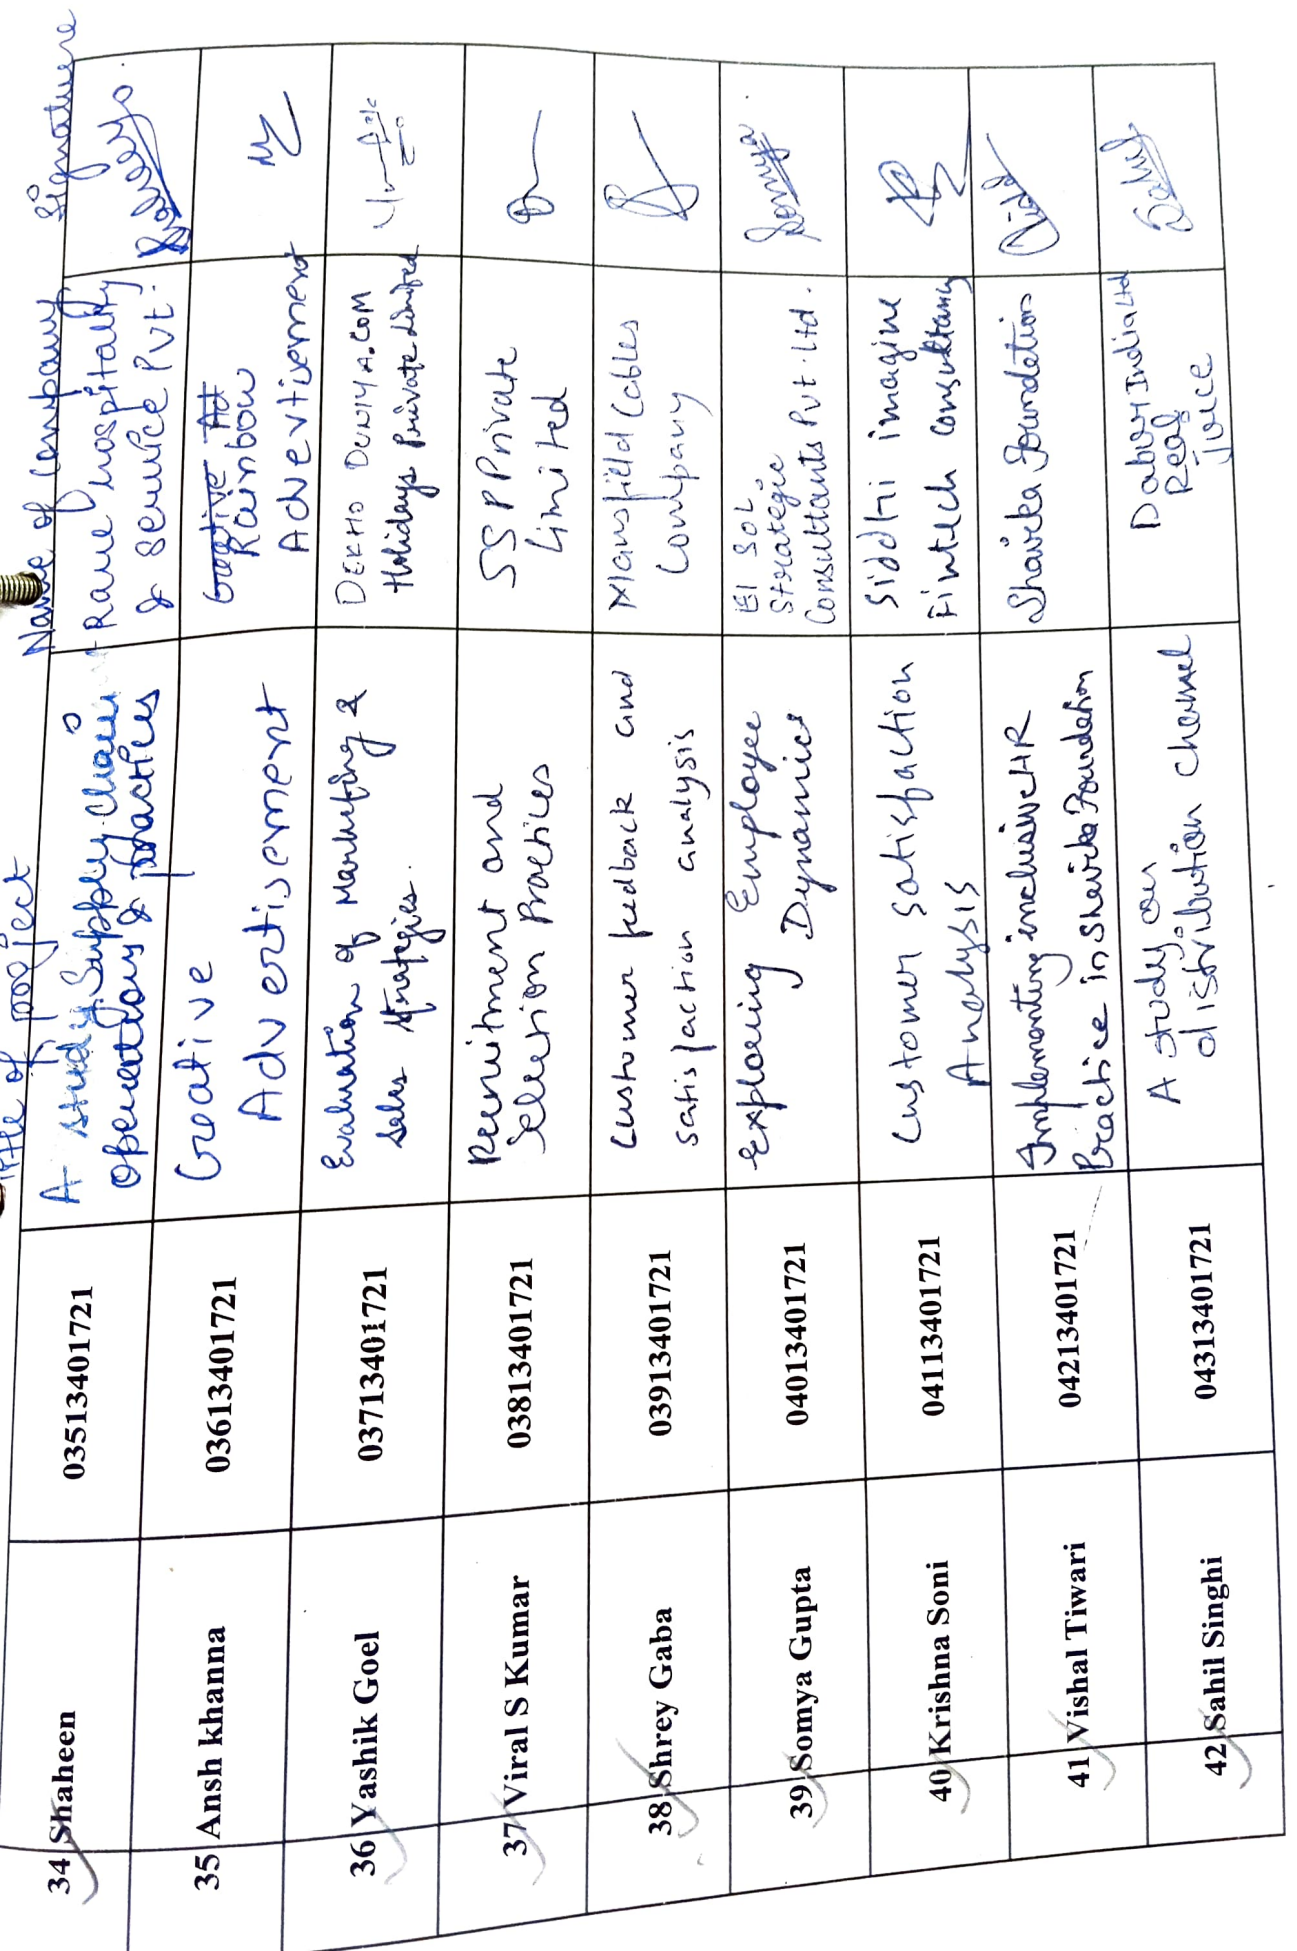 Title of project Name of Company Signature
34 Shaheen 03513401721 A study Supply chain
operations & practices Rane hospitality
& service Pvt.
35 Ansh khanna 03613401721 Creative
Advertisement Rainbow
Advertisement
36 Yashik Goel 03713401721 Evaluation of Marketing &
Sales Strategies. DEKHO DUNIYA.COM
Holidays Private Limited
37 Viral S Kumar 03813401721 Recruitment and
Selection Practices SSP Private
Limited
38 Shrey Gaba 03913401721 Customer feedback and
satisfaction analysis Mansfield Cables
Company
39 Somya Gupta 04013401721 Exploring Employee
Dynamics EI SOL
Strategic
Consultants Pvt. Ltd.
Somya
40 Krishna Soni 04113401721 Customer satisfaction
Analysis Siddhi imagine
Fintech consultancy
41 Vishal Tiwari 04213401721 Implementing inclusive HR
Practice in Shavika Foundation Shavika Foundation
42 Sahil Singhi 04313401721 A study on
distribution channel Dabur India Ltd
Real
Juice